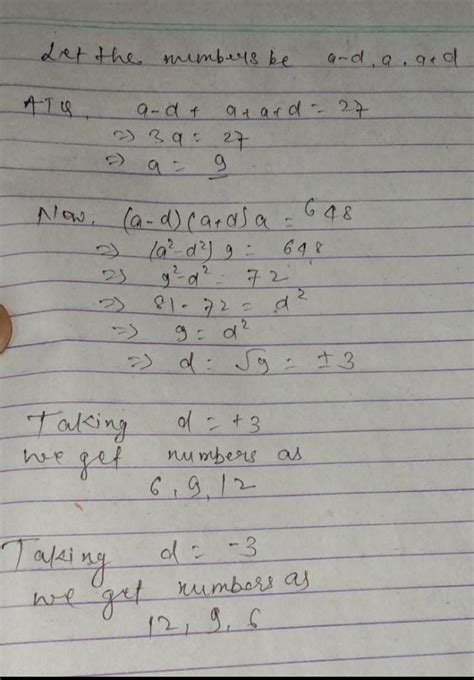 Let the numbers be a-d, a, a+d
ATQ, a-d + a+a+d = 27
=> 3a = 27
=> a = 9
Now, (a-d)(a+d)a = 648
=> (a²-d²) 9 = 648
=> 9²-d² = 72
=> 81-72 = d²
=> 9 = d²
=> d = √9 = ±3
Taking d = +3
we get numbers as
6, 9, 12
Taking d = -3
we get numbers as
12, 9, 6